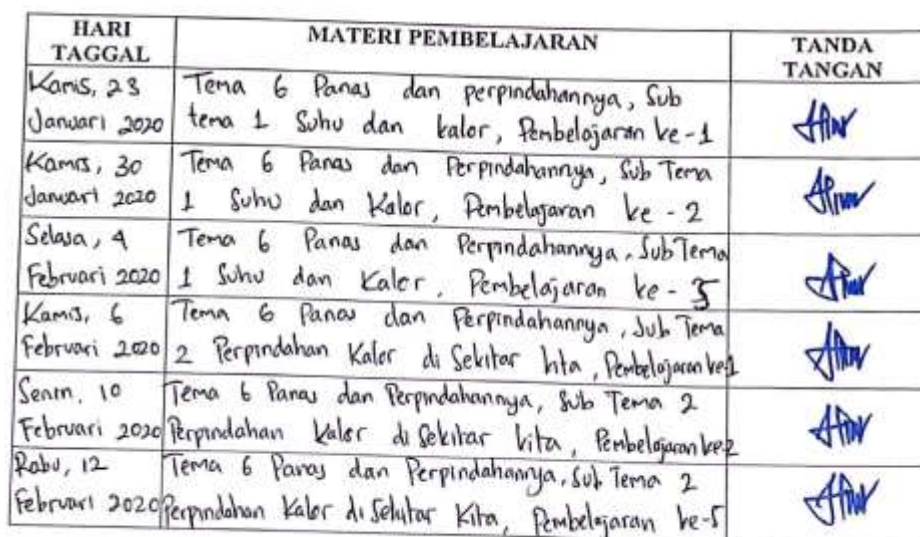 HARI TAGGAL
MATERI PEMBELAJARAN
TANDA TANGAN
Kamis, 23
Januari 2020
Tema 6 Panas dan perpindahannya, Sub
tema 1 Suhu dan kalor, Pembelajaran ke-1
Kamis, 30
Januari 2020
Tema 6 Panas dan Perpindahannya, Sub Tema
1 Suhu dan Kalor, Pembelajaran ke-2
Selasa, 4
Februari 2020
Tema 6 Panas dan Perpindahannya, Sub Tema
1 Suhu dan Kalor, Pembelajaran ke-5
Kamis, 6
Februari 2020
Tema 6 Panas dan Perpindahannya, Sub Tema
2 Perpindahan Kalor di Sekitar kita, Pembelajaran ke1
Senin, 10
Februari 2020
Tema 6 Panas dan Perpindahannya, Sub Tema 2
Perpindahan Kalor di Sekitar kita, Pembelajaran ke2
Rabu, 12
Februari 2020
Tema 6 Panas dan Perpindahannya, Sub Tema 2
Perpindahan Kalor di Sekitar Kita, Pembelajaran ke-5